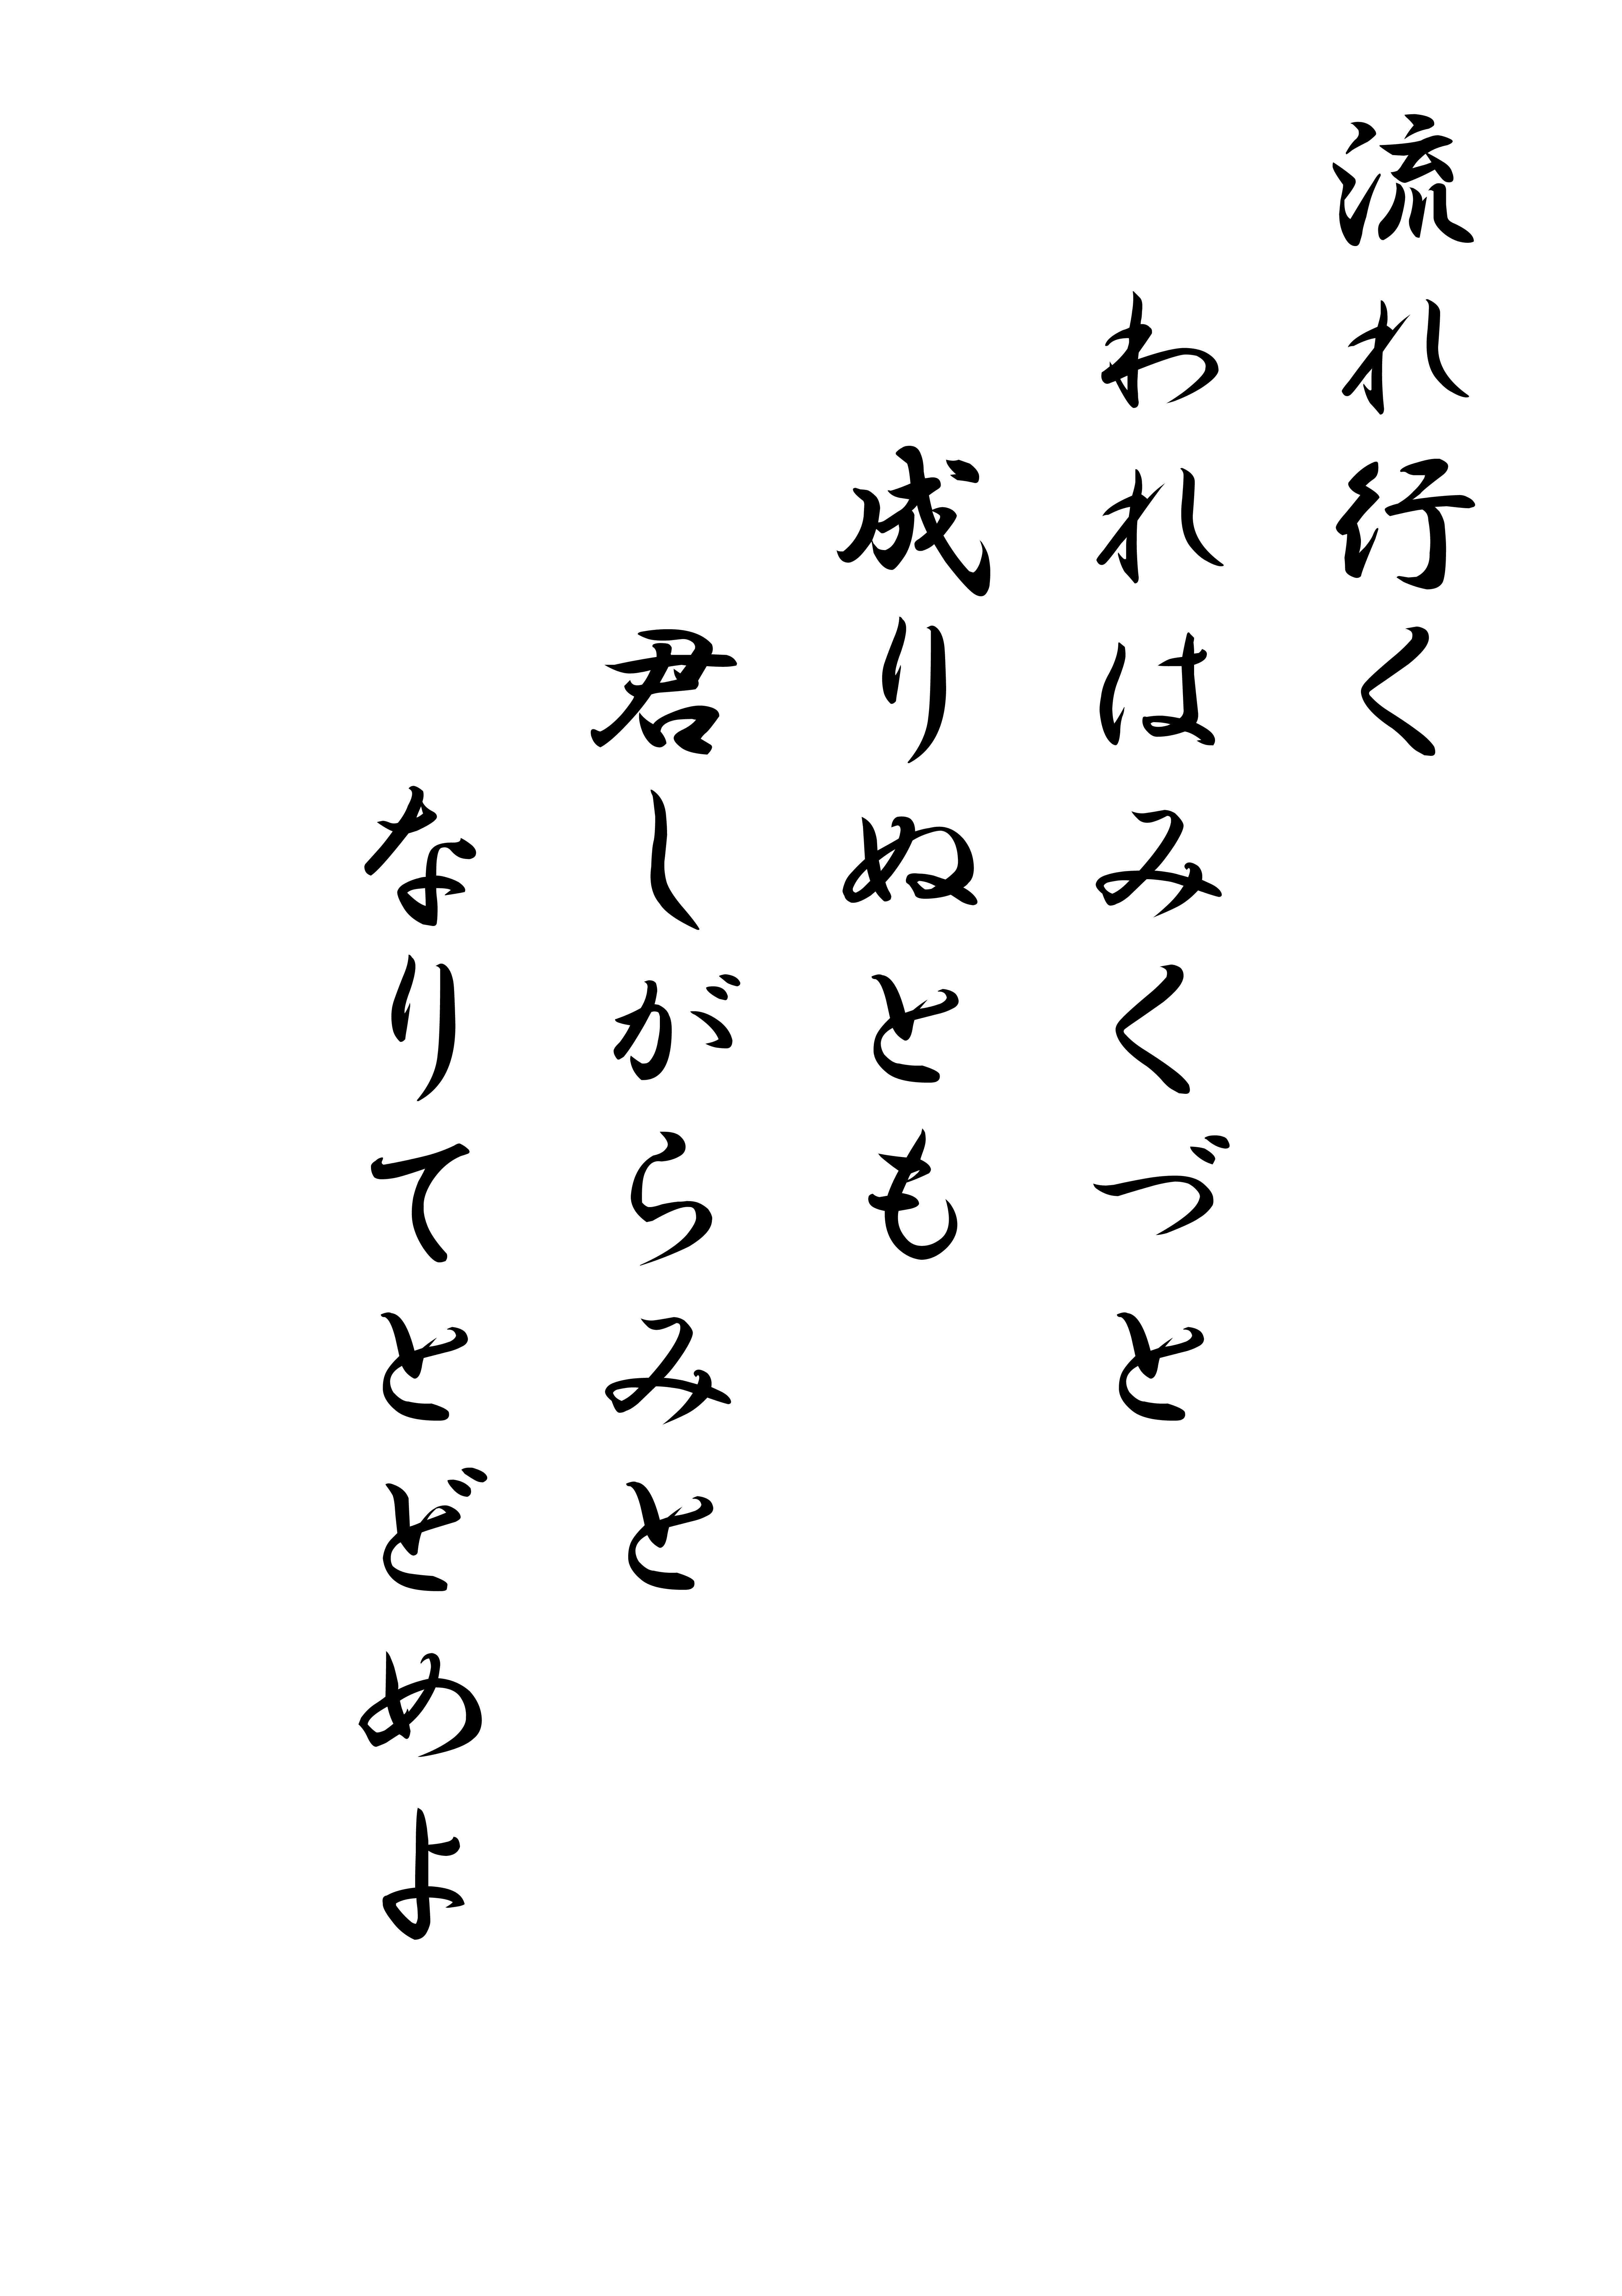 流れ行く
われはみくづと
成りぬとも
君しがらみと
なりてとどめよ